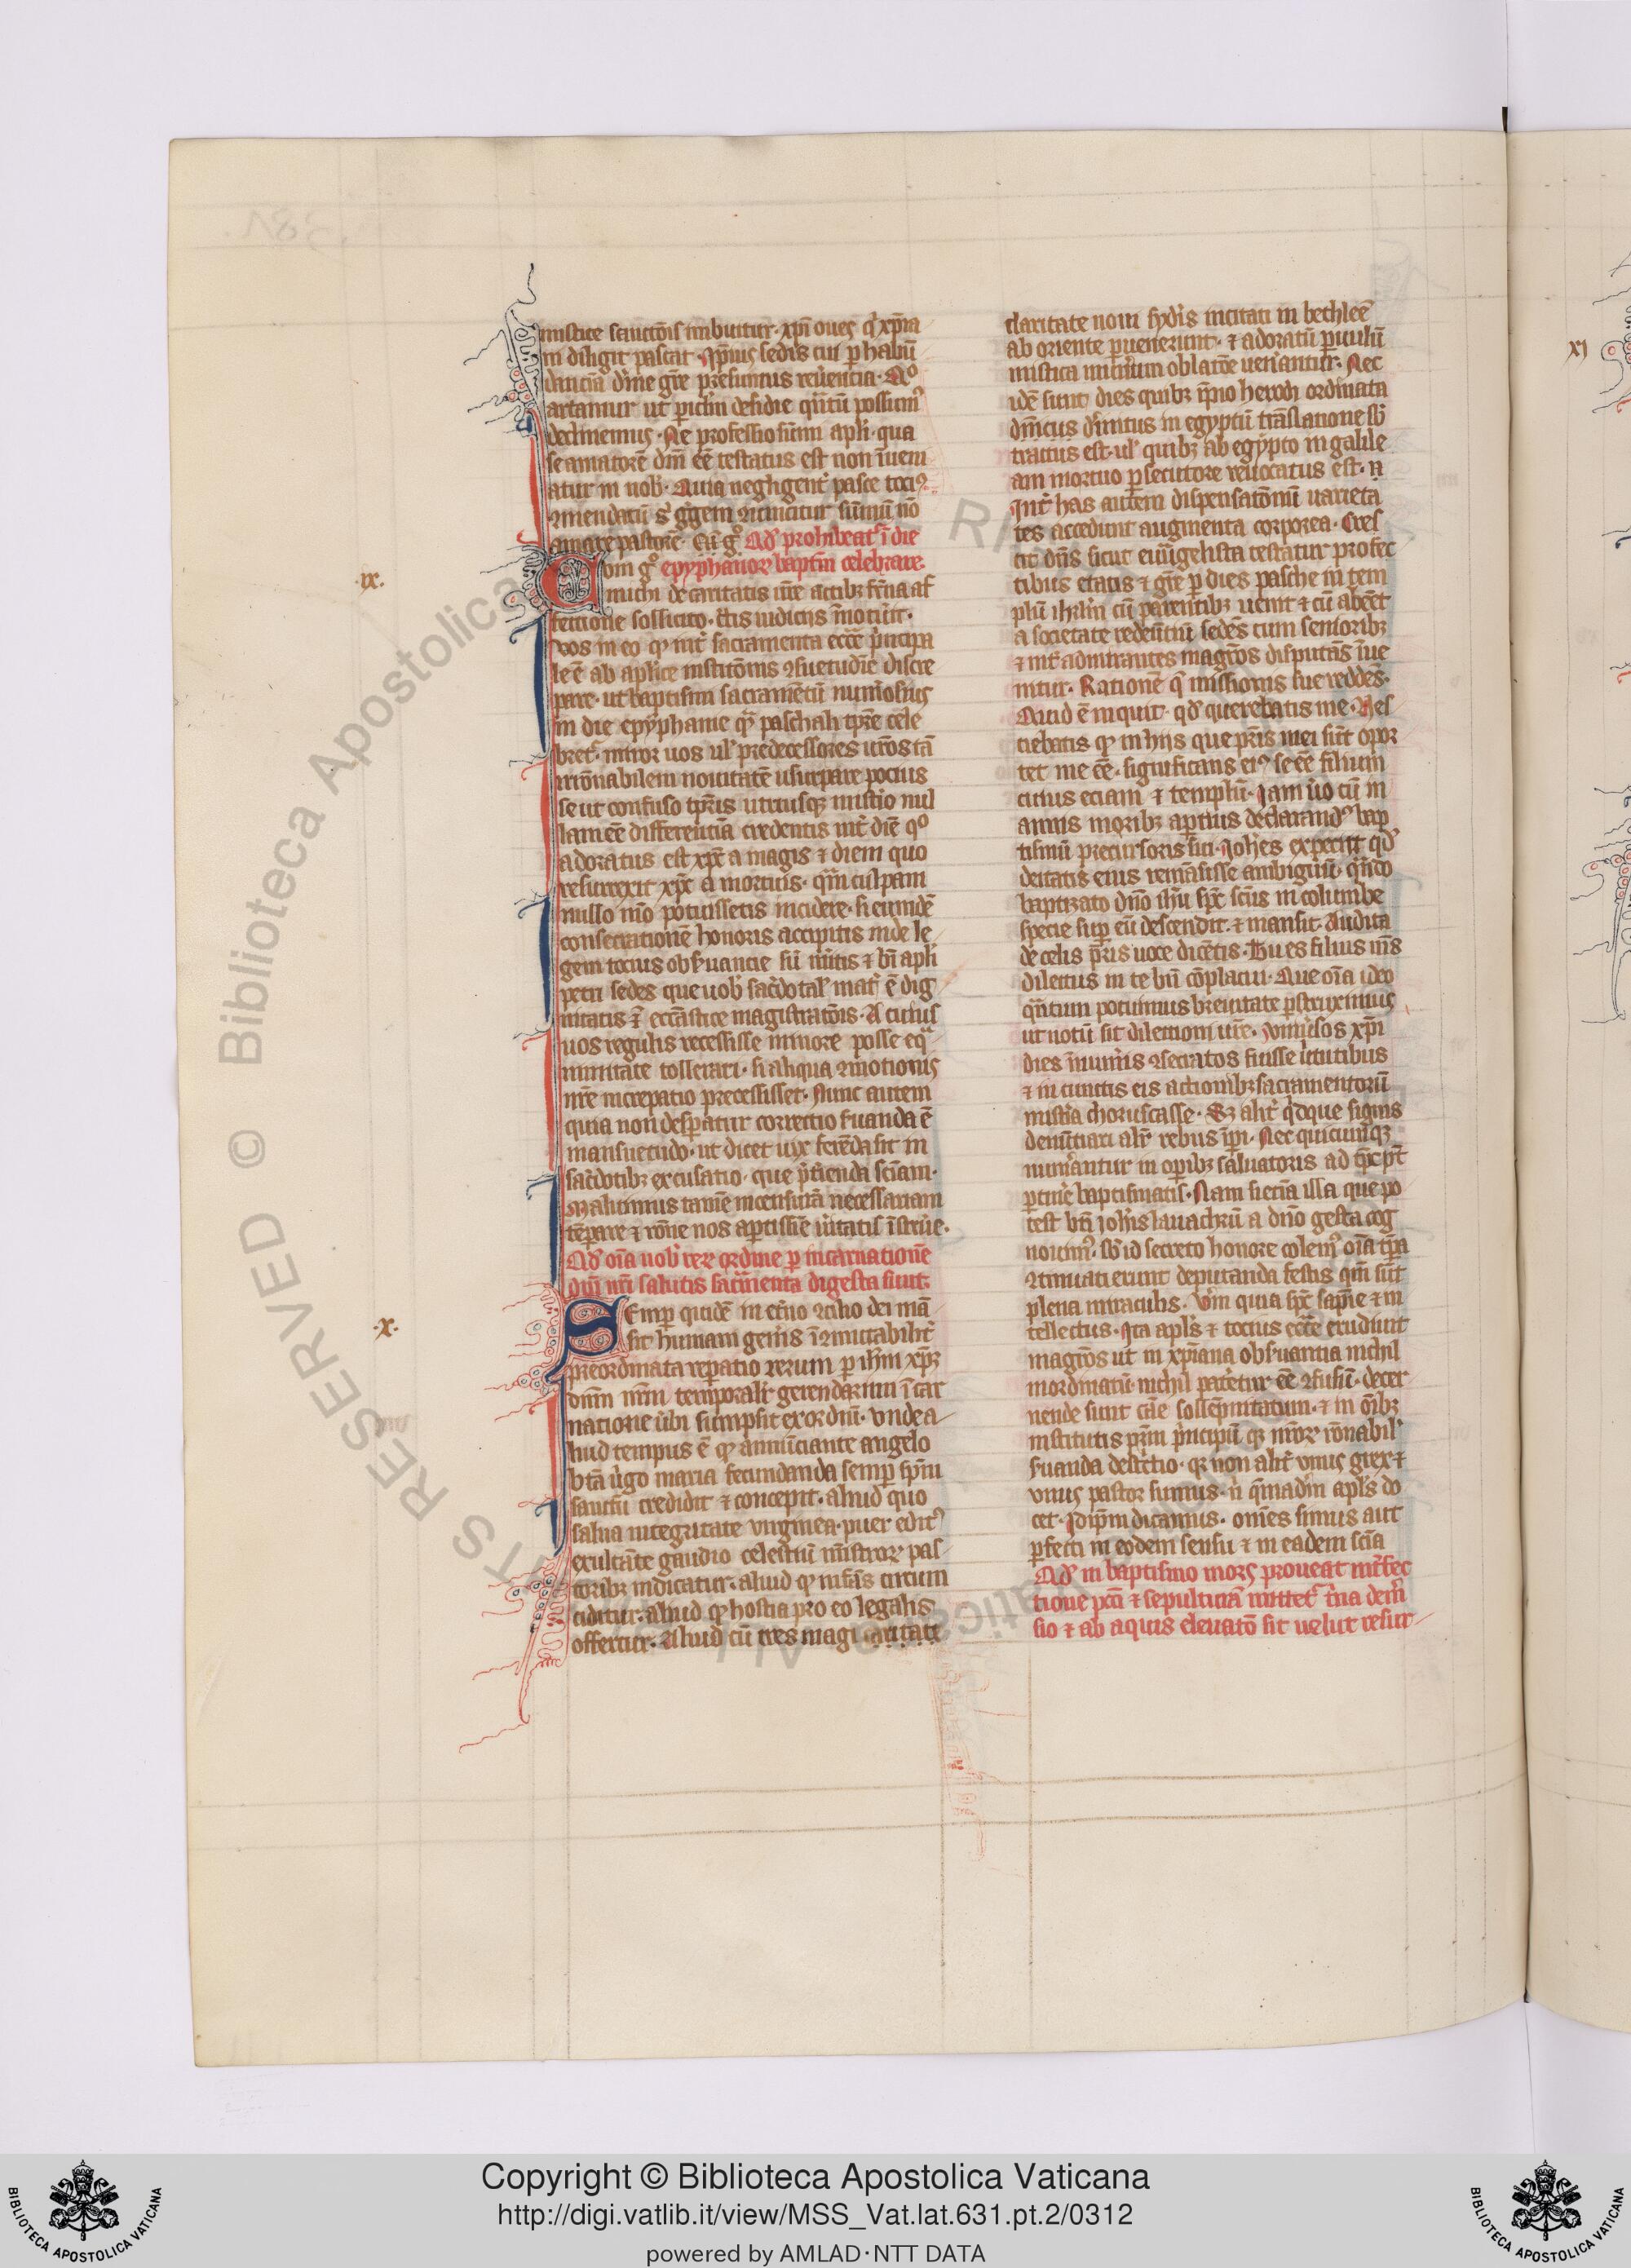 mistice sanctōis imbuitur. xpī oues q̄ xp̄m
in diligit pascat. Ip̄ius sedis cui p habū
dāciā dīne grē presumus reuerentia.
artamur ut piclm desidie quātū possum᷒
declinemus. Ne professio sūmi apli. qua
se amatorē dm̄ eē testatus est non īueni
atur in nob. Quia negligent pasce tociꝰ
ꝯmendatū gregem ꝯuincitur sūmū nō
amare pastorē. Qd prohibeat ī die
om g° epyphanior baptm celebrare.
.ix.
michi de caritatis ure actibꝫ frna af
fectione sollicito. ctis iudiciis īnotuit.
vos in eo qꝫ int sacramenta ecce p̄ncipa
le ē ab aplice institōnis ꝯsuetudie discre
pare. ut baptismi sacramētū numosius
in die epyphanie q̄ paschali tp̄re cele
bret. miror uos ul predecessores uros tā
irrōnabilem nouitatē usurpare pocius
se ut confuso tp̄ris utriusqꝫ mistio nul
lam eē differentiā credentis int diē q°
adoratus est xp̄c a magis ⁊ diem quo
resurrexit xp̄c a mortuis. qm culpam
nullo mō potuissetis incidere. si eundē
consecrationē honoris accipitis inde le
gem tocius obsuancie sumitis ⁊ bī apli
petri sedes que uob sacdotal mat ē dig
nitatis ē eccāstice magistratōis. A cuius
uos regulis recessisse minore posse eq
nimitate tollerari. si aliqua ꝯmotionis
nre increpatio precessisset. Nunc autem
quia non despatur correctio suanda ē
mansuetudo. ut dicet uix ferēda sit in
sacdotibꝫ excusatio. que p̄tienda sciam.
Malumus tamē incensurā necessariam
tēpare ⁊ rōne nos aptissīe uitatis īstrue.
Qd oīa nob rerꝝ ordine p incarnationē
dni nri salutis sacmenta digesta sunt.
.x.
Semp quidē in etno ꝯsilio dei mā
sit humani genis ī ꝯmutabilit
preordinata repatio rerum p ihm xp̄m
dnm nrm temporalit gerendarum ī car
natione ubi sumpsit exordiū. Unde a
liud tempus ē qꝫ annūciante angelo
btā ugo maria fecundanda semp sp̄m
sanctū credidit ⁊ concepit. aliud quo
salua integritate uirginea. puer editꝰ
exultāte gaudio celestiū mistrorꝝ pas
toribꝫ indicatur. aliud qꝫ infās circum
ciditur. aliud qꝫ hostia pro eo legalis
offertur. Aliud cū tres magi caritate
claritate noui sydis incitati in bethleē
ab oriente puenerunt. ⁊ adoratū puulū
mistica munum oblatōe uenantur. Nec
idē sunt dies quibꝫ īpio herodi ordinata
dnicus diuinitus in egyptū trāslatione sb
tractus est. ul quibꝫ ab egypto in galile
am mortuo psecutore reuocatus est. n
Int has autem dispensatōnū uarieta
tes accedunt augmenta corporea. Cres
cit dns sicut euugelista testatur profec
tibus etatis ⁊ grē p dies pasche in tem
plū ihrlm cū parentibꝫ uenit ⁊ cū abēēt
a societate redeuntiū sedēs cum senioribꝫ
⁊ int admirantes magros disputās īue
nitur. Rationē q̄ missionis sue reddēs.
Quid ē inquit. qd querebatis me. Nes
ciebatis qꝫ in hiis que pris mei sūt opor
tet me eē. significans eiꝰ se eē filium
cuius eciam ⁊ templū. Iam uo cū in
annis moribꝫ aptius declarandꝰ bap
tismū precursoris sui Johes expetiit qd
deitatis eius remāsisse ambiguū. qn̄do
baptizato dno ihu sp̄c scus in columbe
specie sup eū descendit. ⁊ mansit. Audita
de celis pris uoce dicētis. Tu es filius ms
dilectus in te bn̄ cōplacui. Que oīa ideo
qntum potuimus breuitate pstruximus
ut notū sit dilectioni ure. uniusos xp̄i
dies īnumis ꝯsecratos fuisse ututibus
⁊ in cunctis eis actionibꝫ sacramentorū
mistia choruscasse. Sꝫ alit q̄dque signis
denūtiari alit rebus īpi. Nec quicumqꝫ
numantur in opibꝫ saluatoris ad tp̄c pt
ptine baptismatis. Nam si eciā illa que po
test bti johis lauachrū a dno gesta cog
nouim. sb id secreto honore colem oīa tp̄a
ꝯtinuati erunt deputanda festis qm sūt
plena miraculis. Vm quia sp̄c sapiē ⁊ in
tellectus. Ita apls ⁊ tocius ecce erudiuit
magros ut in xp̄iana obsuantia nichil
inordinatū. nichil pateretur eē ꝯfusū. decer
nende sunt cāe sollēpnitatum. ⁊ in oībꝫ
institutis prm p̄ncipū qꝫ nror rōnabil
suanda destcio. q̄ non alit unus grex ⁊
unus pastor sumus. n qmadm apls do
cet. Idipm dicamus. omēs simus aut
pfecti in eodem sensu ⁊ in eadem sciā
Qd in baptismo mors proueat infec
tione pcci ⁊ sepulturā imitet trina dem
sio ⁊ ab aquis eleuatō sit uelut resur
xi
Copyright © Biblioteca Apostolica Vaticana
http://digi.vatlib.it/view/MSS_Vat.lat.631.pt.2/0312
powered by AMLAD·NTT DATA
BIBLIOTECA APOSTOLICA VATICANA
BIBLIOTECA APOSTOLICA VATICANA